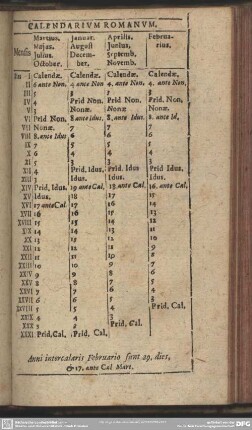 CALENDARIUM ROMANUM,
Mensis Martius, Januar. Aprilis, Februa-
Majus, August Junius, rius.
Julius, Decem- Septemb,
October. ber, Novemb.
I. Calendæ. Calendæ, Calendæ, Calendæ,
II 6 ante Non. 4 ante Non, 4 ante Non, 4. ante Non,
III 5 3 3 3
IV 4 Prid Non. Prid Non, Prid Non,
V 3 Nonæ, Nonæ, Nonæ,
VI Prid Non. 8 ante Idus. 8. ante Idus, 8. ante Id,
VII Nonæ. 7 7 7
VIII 8. ante Idus 6 6 6
IX 7 5 5 5
X 6 4 4 4
XI 5 3 3 3
XII 4 Prid, Idus, Prid, Idus Prid Idus.
XIII 3 Idus. Idus. Idus.
XIV Prid, Idus. 19 ante Cal. 18 ante Cal, 16. ante Cal,
XV Idus. 18 17 15
XVI 17 ante Cal. 17 16 14
XVII 16 16 15 13
XVIII 15 15 14 12
XIX 14 14 13 11
XX 13 13 12 10
XXI 12 12 11 9
XXII 11 11 10 8
XXIII 10 10 9 7
XXIV 9 9 8 6
XXV 8 8 7 5
XXVI 7 7 6 4
XXVII 6 6 5 3
XXVIII 5 5 4 Prid, Cal.
XXIX 4 4 3
XXX 3 3 Prid, Cal.
XXXI Prid, Cal, Prid, Cal.
Anni intercalaris Februario sunt 29. dies,
& 17. ante Cal Mart.